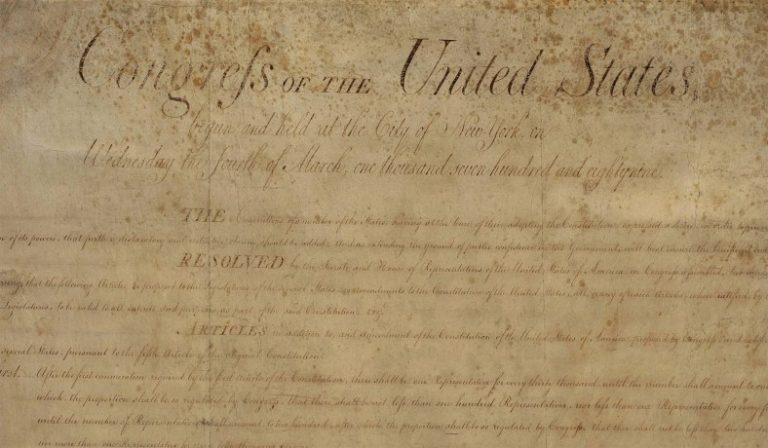 Congreſs OF THE United States,
begun and held at the City of New York, on
Wednesday the fourth of March, one thousand seven hundred and eighty nine.
THE Conventions of a number of the States, having at the time of their adopting the Constitution, expreſsed a desire, in order to prevent
of its powers, that further declaratory and restrictive clauses should be added: And as extending the ground of public confidence in the Government, will best ensure the beneficent ends
RESOLVED by the Senate and House of Representatives of the United States of America, in Congreſs aſsembled, two thirds
that the following Articles be proposed to the Legislatures of the several States, as amendments to the Constitution of the United States, all, or any of which Articles, when ratified by
Legislatures, to be valid to all intents and purposes, as part of the said Constitution; viz.
ARTICLES in addition to, and amendment of the Constitution of the United States of America, proposed by Congreſs, and ratified
several States, pursuant to the fifth Article of the original Constitution.
After the first enumeration required by the first Article of the Constitution, there shall be one Representative for every thirty thousand, until the number shall amount to one
which, the proportion shall be so regulated by Congreſs, that there shall be not leſs than one hundred Representatives, nor leſs than one Representative for every forty
until the number of Representatives shall amount to two hundred, after which, the proportion shall be so regulated by Congreſs, that there shall not be leſs than two hundred
nor more than one Representative for every fifty thousand persons.